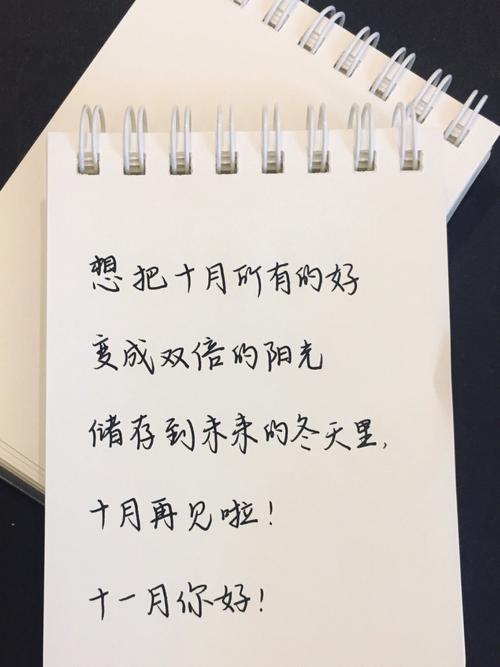 想把十月所有的好
变成双倍的阳光
储存到未来的冬天里,
十月再见啦!
十一月你好!